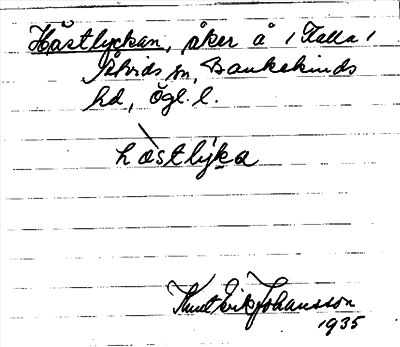 Hästlyckan, åker å / Kalla /
Örtrids sn, Bankekinds
hd, Ögl. l.
hàstlyka
Knut Erik Johansson
1935